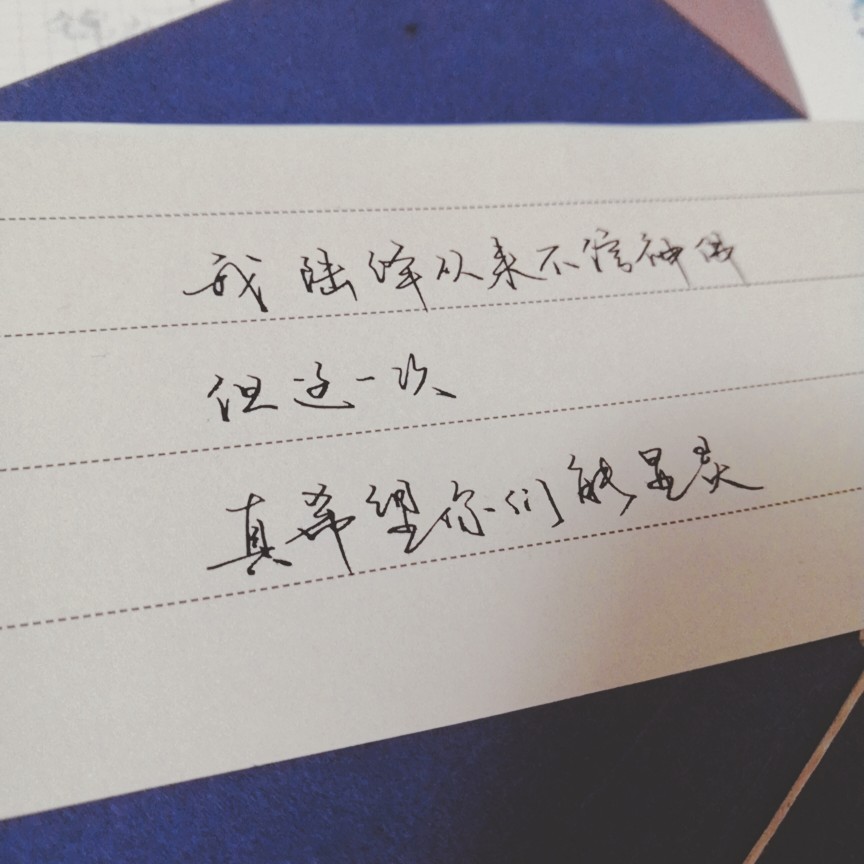 我陆绎从来不信神佛
但这一次
真希望你们能显灵